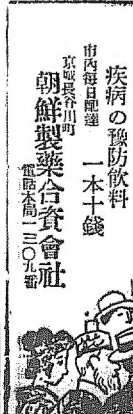 疾病の豫防飲料
市內每日配達 一本十錢
京城長谷川町
朝鮮製藥合資會社
電話本局一三〇九番